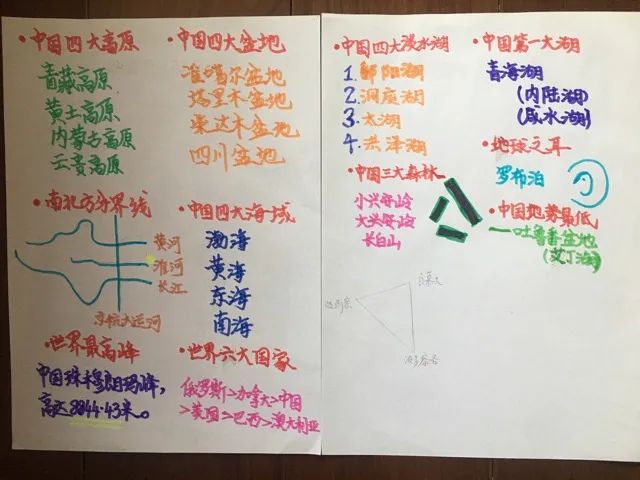 •中国四大高原
青藏高原
黄土高原
内蒙古高原
云贵高原
•中国四大盆地
准噶尔盆地
塔里木盆地
柴达木盆地
四川盆地
•南北方分界线
黄河
淮河
长江
京杭大运河
•中国四大海域
渤海
黄海
东海
南海
•世界最高峰
中国珠木穆朗玛峰,
高达8844.43米。
•世界六大国家
俄罗斯>加拿大>中国
>美国>巴西>澳大利亚
•中国四大淡水湖
1.鄱阳湖
2.洞庭湖
3.太湖
4.洪泽湖
•中国三大森林
小兴安岭
大兴安岭
长白山
•中国第一大湖
青海湖
(内陆湖)
(咸水湖)
•地球之耳
罗布泊
•中国地势最低
——吐鲁番盆地
(艾丁湖)